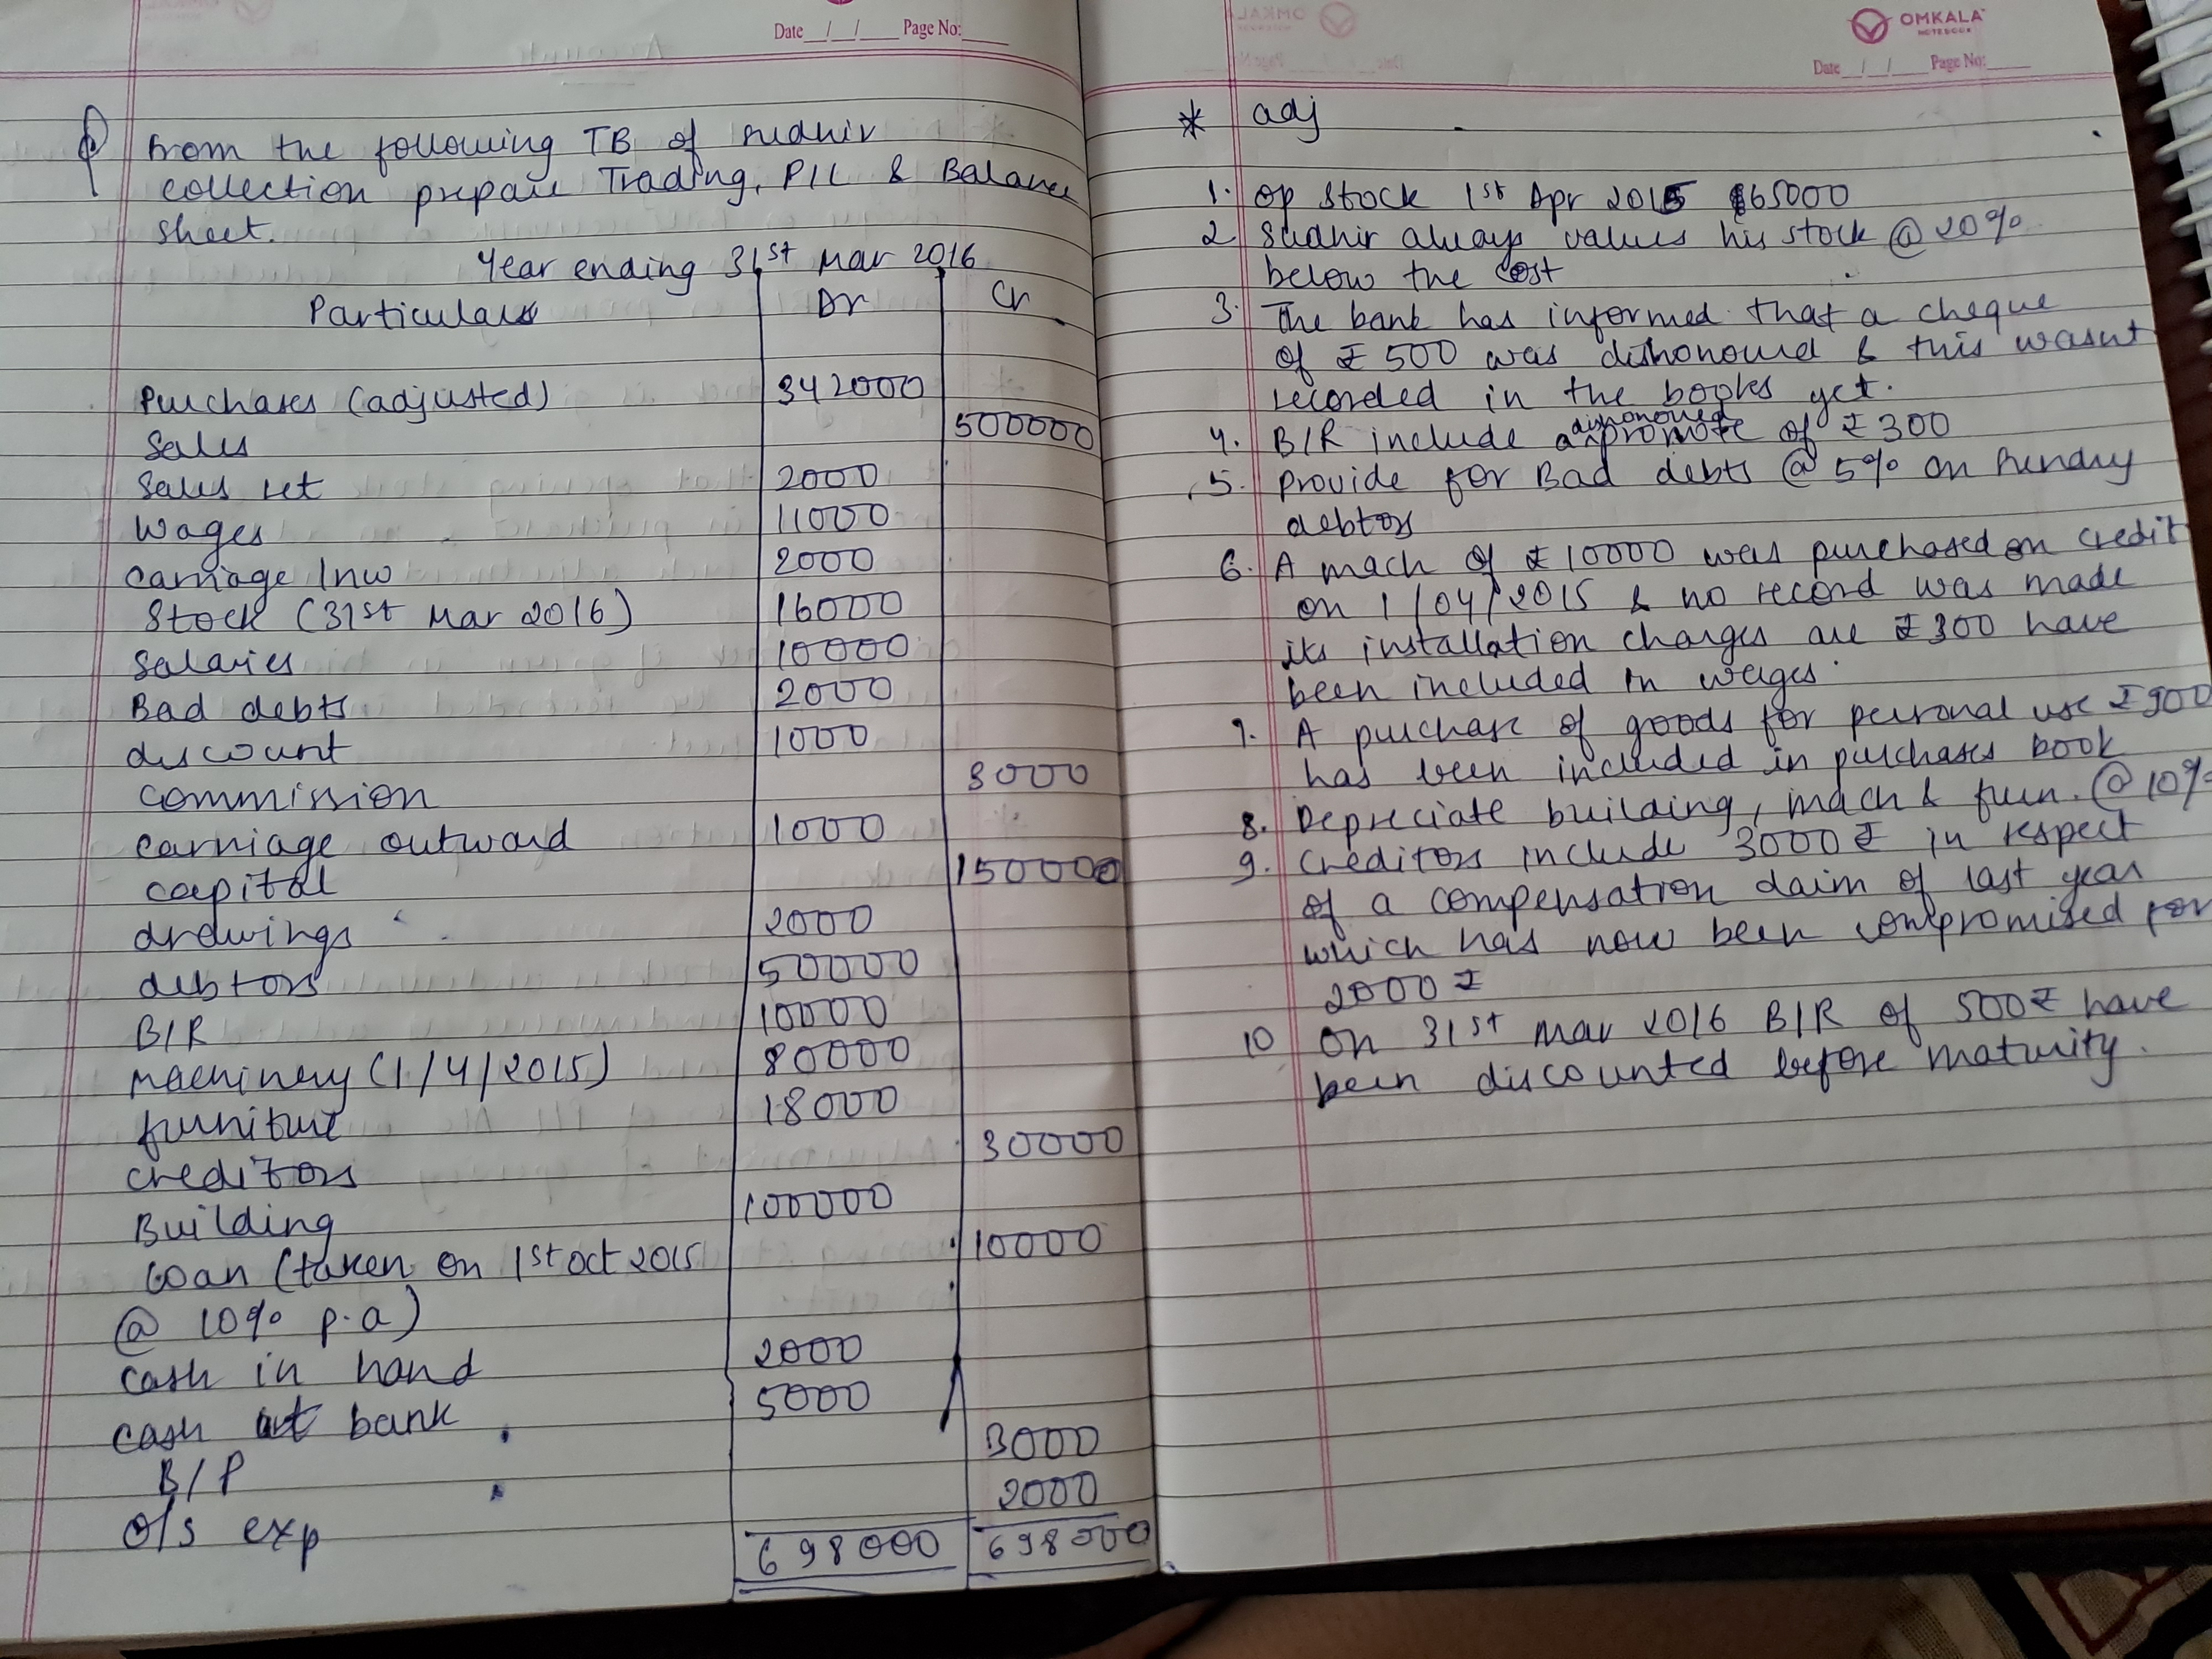 Date __/__/__ Page No: ____
Q) From the following TB of Sudhir
collection prepare Trading, P/L & Balance
sheet.
Year ending 31st Mar 2016
Particulars Dr Cr
Purchases (adjusted) 342000
Sales 500000
Sales ret 2000
Wages 11000
Carriage Inw 2000
Stock (31st Mar 2016) 16000
Salaries 10000
Bad debts 2000
discount 1000
commission 3000
carriage outward 1000
capital 150000
drawings 2000
debtors 50000
B/R 10000
Machinery (1/4/2015) 80000
furniture 18000
creditors 30000
Building 100000
Loan (taken on 1st oct 2015 10000
@ 10% p.a)
cash in hand 2000
cash at bank 5000
B/P 3000
o/s exp 2000
698000 698000
OMKALA
NOTEBOOK
Date __/__/__ Page No: ____
* adj
1. op stock 1st Apr 2015 65000
2 Sudhir always values his stock @ 20%
below the cost
3. The bank has informed that a cheque
of ₹ 500 was dishonoured & this wasnt
recorded in the books yet.
4. B/R include a dishonoured of ₹ 300
5. provide for Bad debts @ 5% on sundry
debtors
6. A mach of ₹ 10000 was purchased on credit
on 1/04/2015 & no record was made
its installation charges are ₹ 300 have
been included in wages.
7. A purchase of goods for personal use ₹ 900
has been included in purchases book
8. Depreciate building, mach & furn. @ 10%
9. Creditors include 3000 ₹ in respect
of a compensation claim of last year
which has now been compromised for
2000 ₹
10 On 31st mar 2016 B/R of 500 ₹ have
been discounted before maturity.